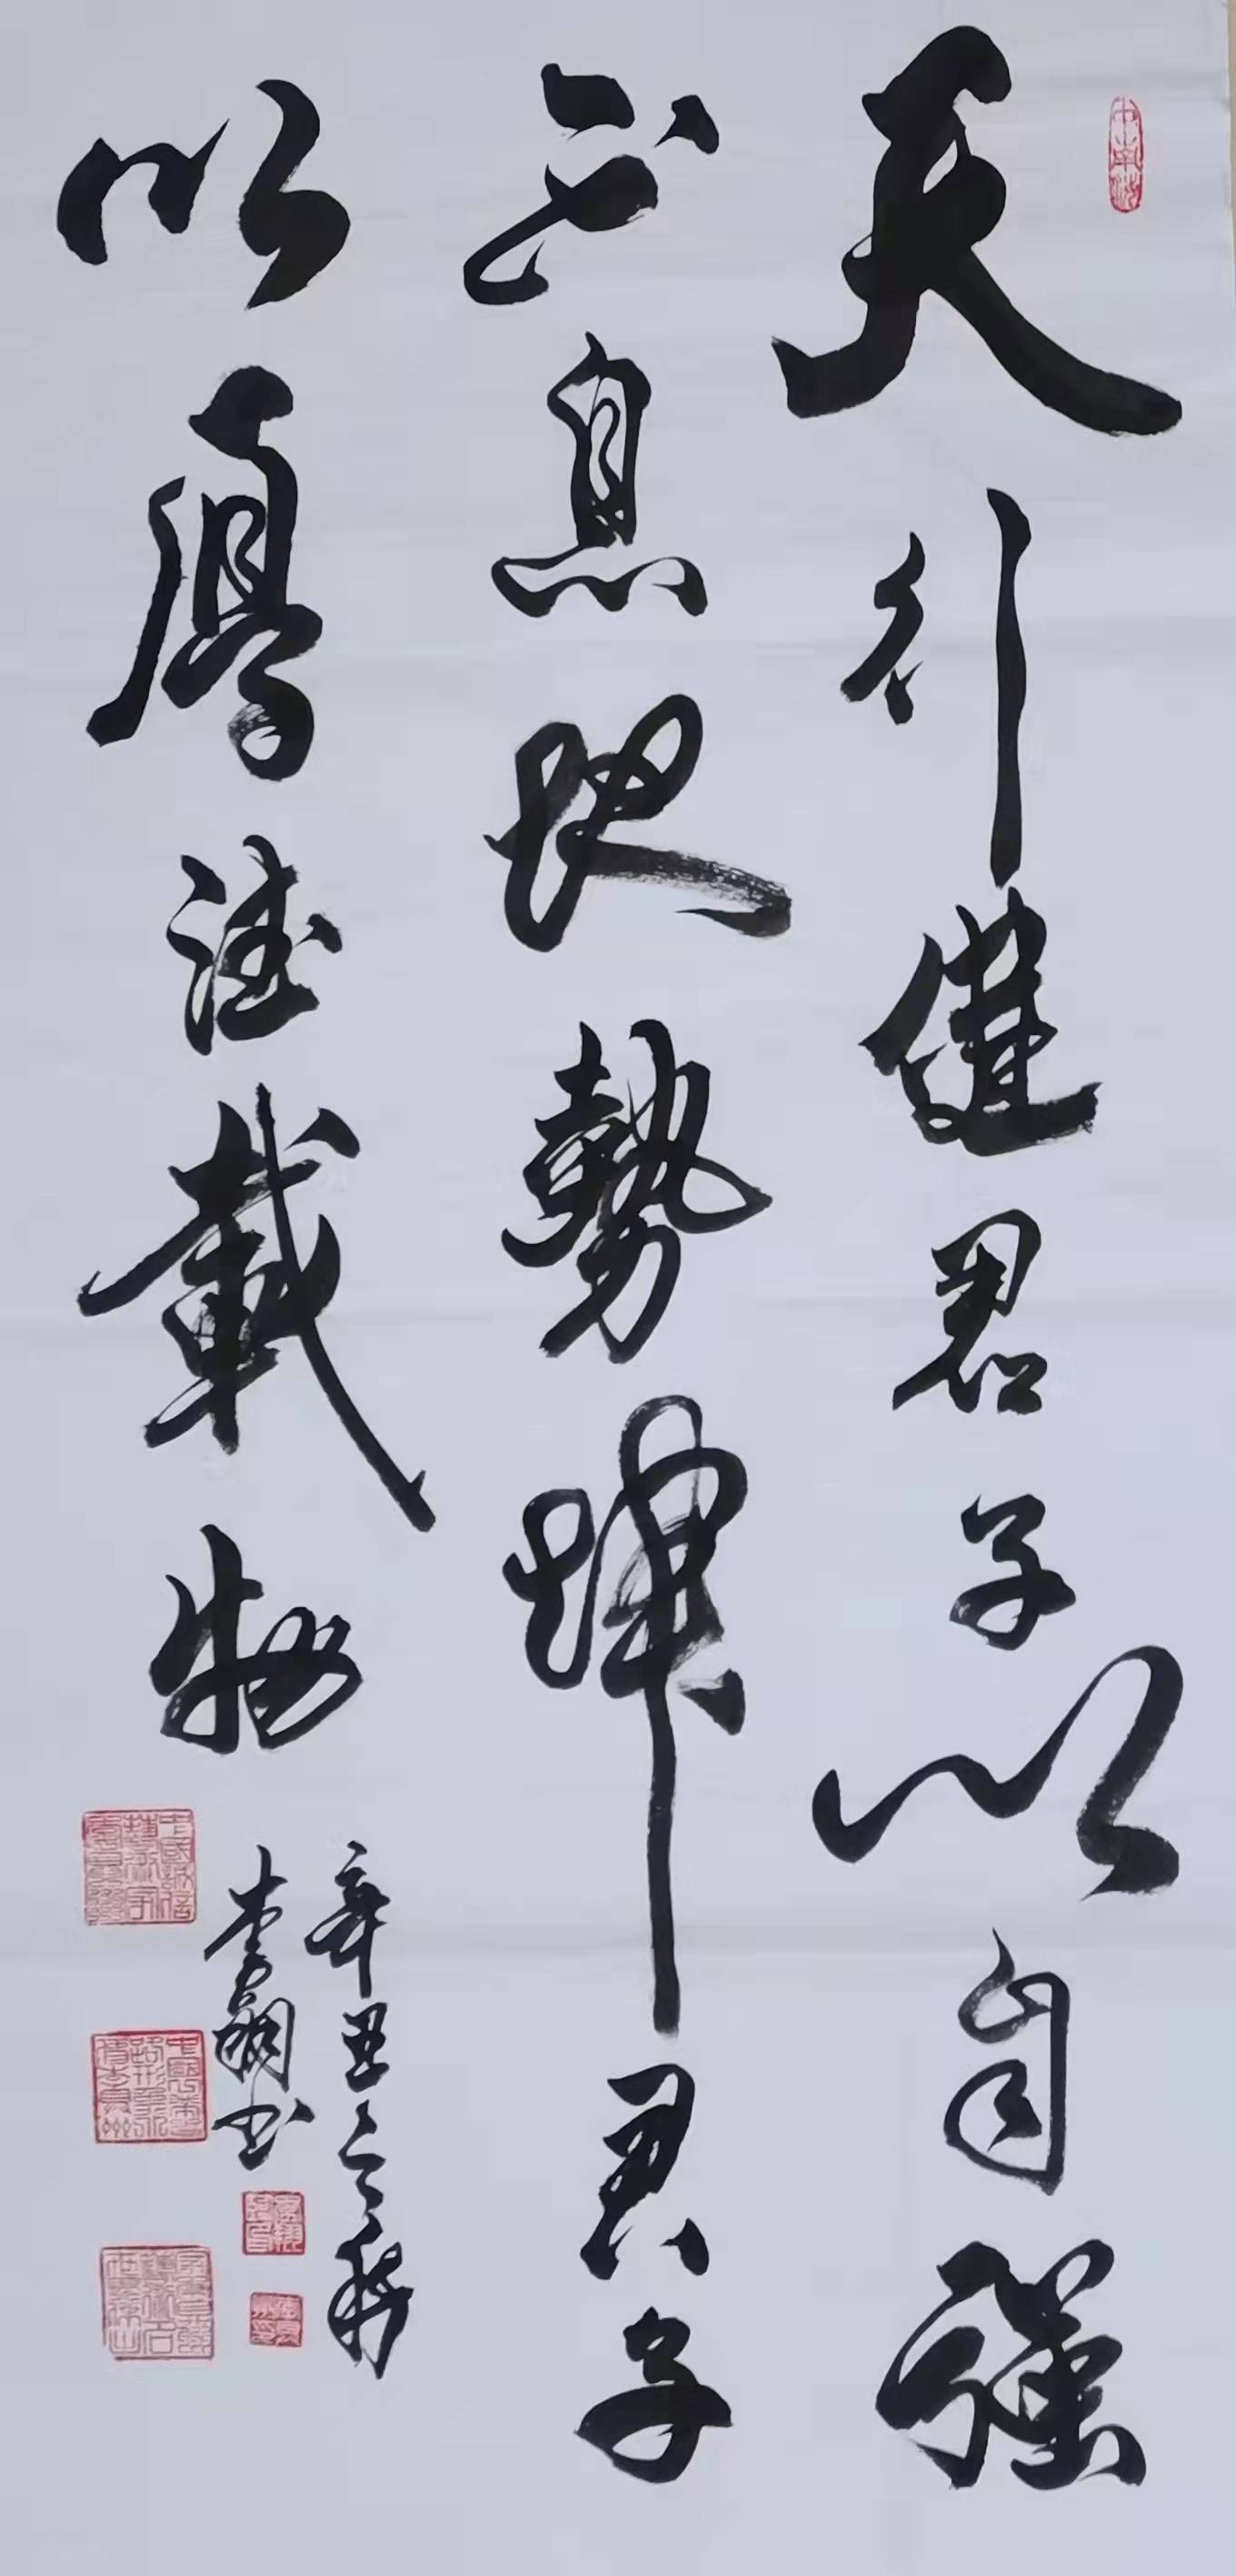 天行健君子以自強
不息地勢坤君子
以厚德載物
辛丑之秋
李翱書